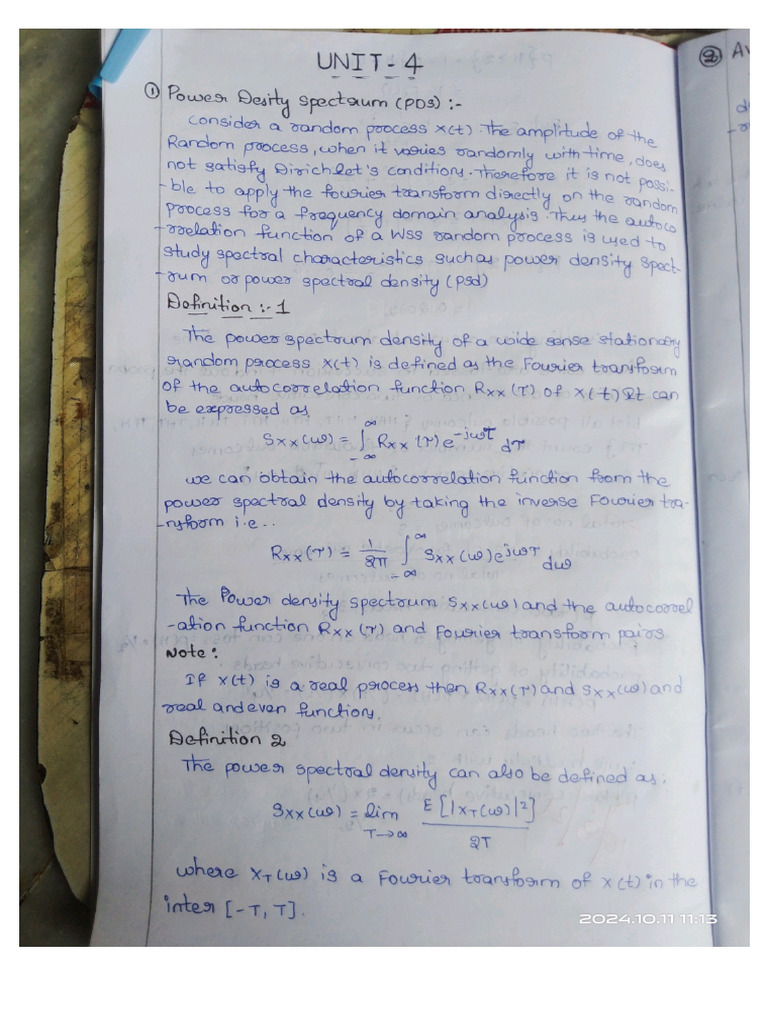 UNIT-4
① Power Desity Spectrum (PDS) :-
Consider a random process X(t). The amplitude of the
Random process, when it varies randomly with time, does
not satisfy Dirichlet's conditions. Therefore it is not possi-
-ble to apply the fourier transform directly on the random
process for a frequency domain analysis. Thus the autoco
-rrelation function of a WSS random process is used to
study spectral characteristics such as power density spect-
-rum or power spectral density (psd)
Definition :- 1
The power spectrum density of a wide sense stationary
random process X(t) is defined as the Fourier transform
of the autocorrelation function Rxx (τ) of X(t) It can
be expressed as
Sxx(ω) = ∫_{-∞}^{∞} Rxx (τ) e^{-jωτ} dτ
we can obtain the autocorrelation function from the
power spectral density by taking the inverse Fourier tra-
-nsform i.e..
Rxx(τ) = 1/2π ∫_{-∞}^{∞} Sxx(ω) e^{jωτ} dω
The Power density spectrum Sxx(ω) and the autocorrel
-ation function Rxx(τ) and Fourier transform pairs
Note:
If X(t) is a real process then Rxx(τ) and Sxx(ω) and
real and even function.
Definition 2
The power spectral density can also be defined as:
Sxx(ω) = lim_{T→∞} E[|XT(ω)|²] / 2T
where XT(ω) is a Fourier transform of X(t) in the
inter [-T, T].
② Av
2024.10.11 11:13